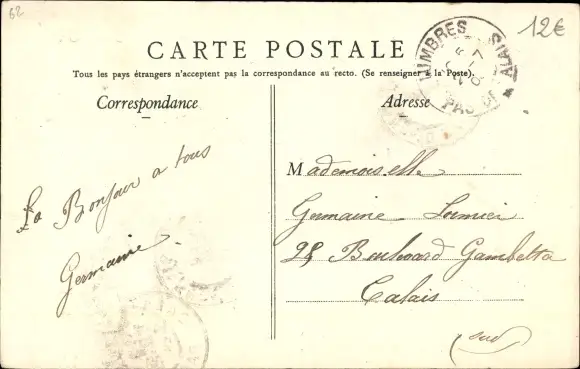 62
12€
CARTE POSTALE
Tous les pays étrangers n'acceptent pas la correspondance au recto. (Se renseigner à la Poste).
Correspondance
Adresse
LUMBRES
PAS
CALAIS
Bonjour a tous
Germaine
Mademoiselle
Germaine
25 Boulevard Gambetta
Calais
(sud)